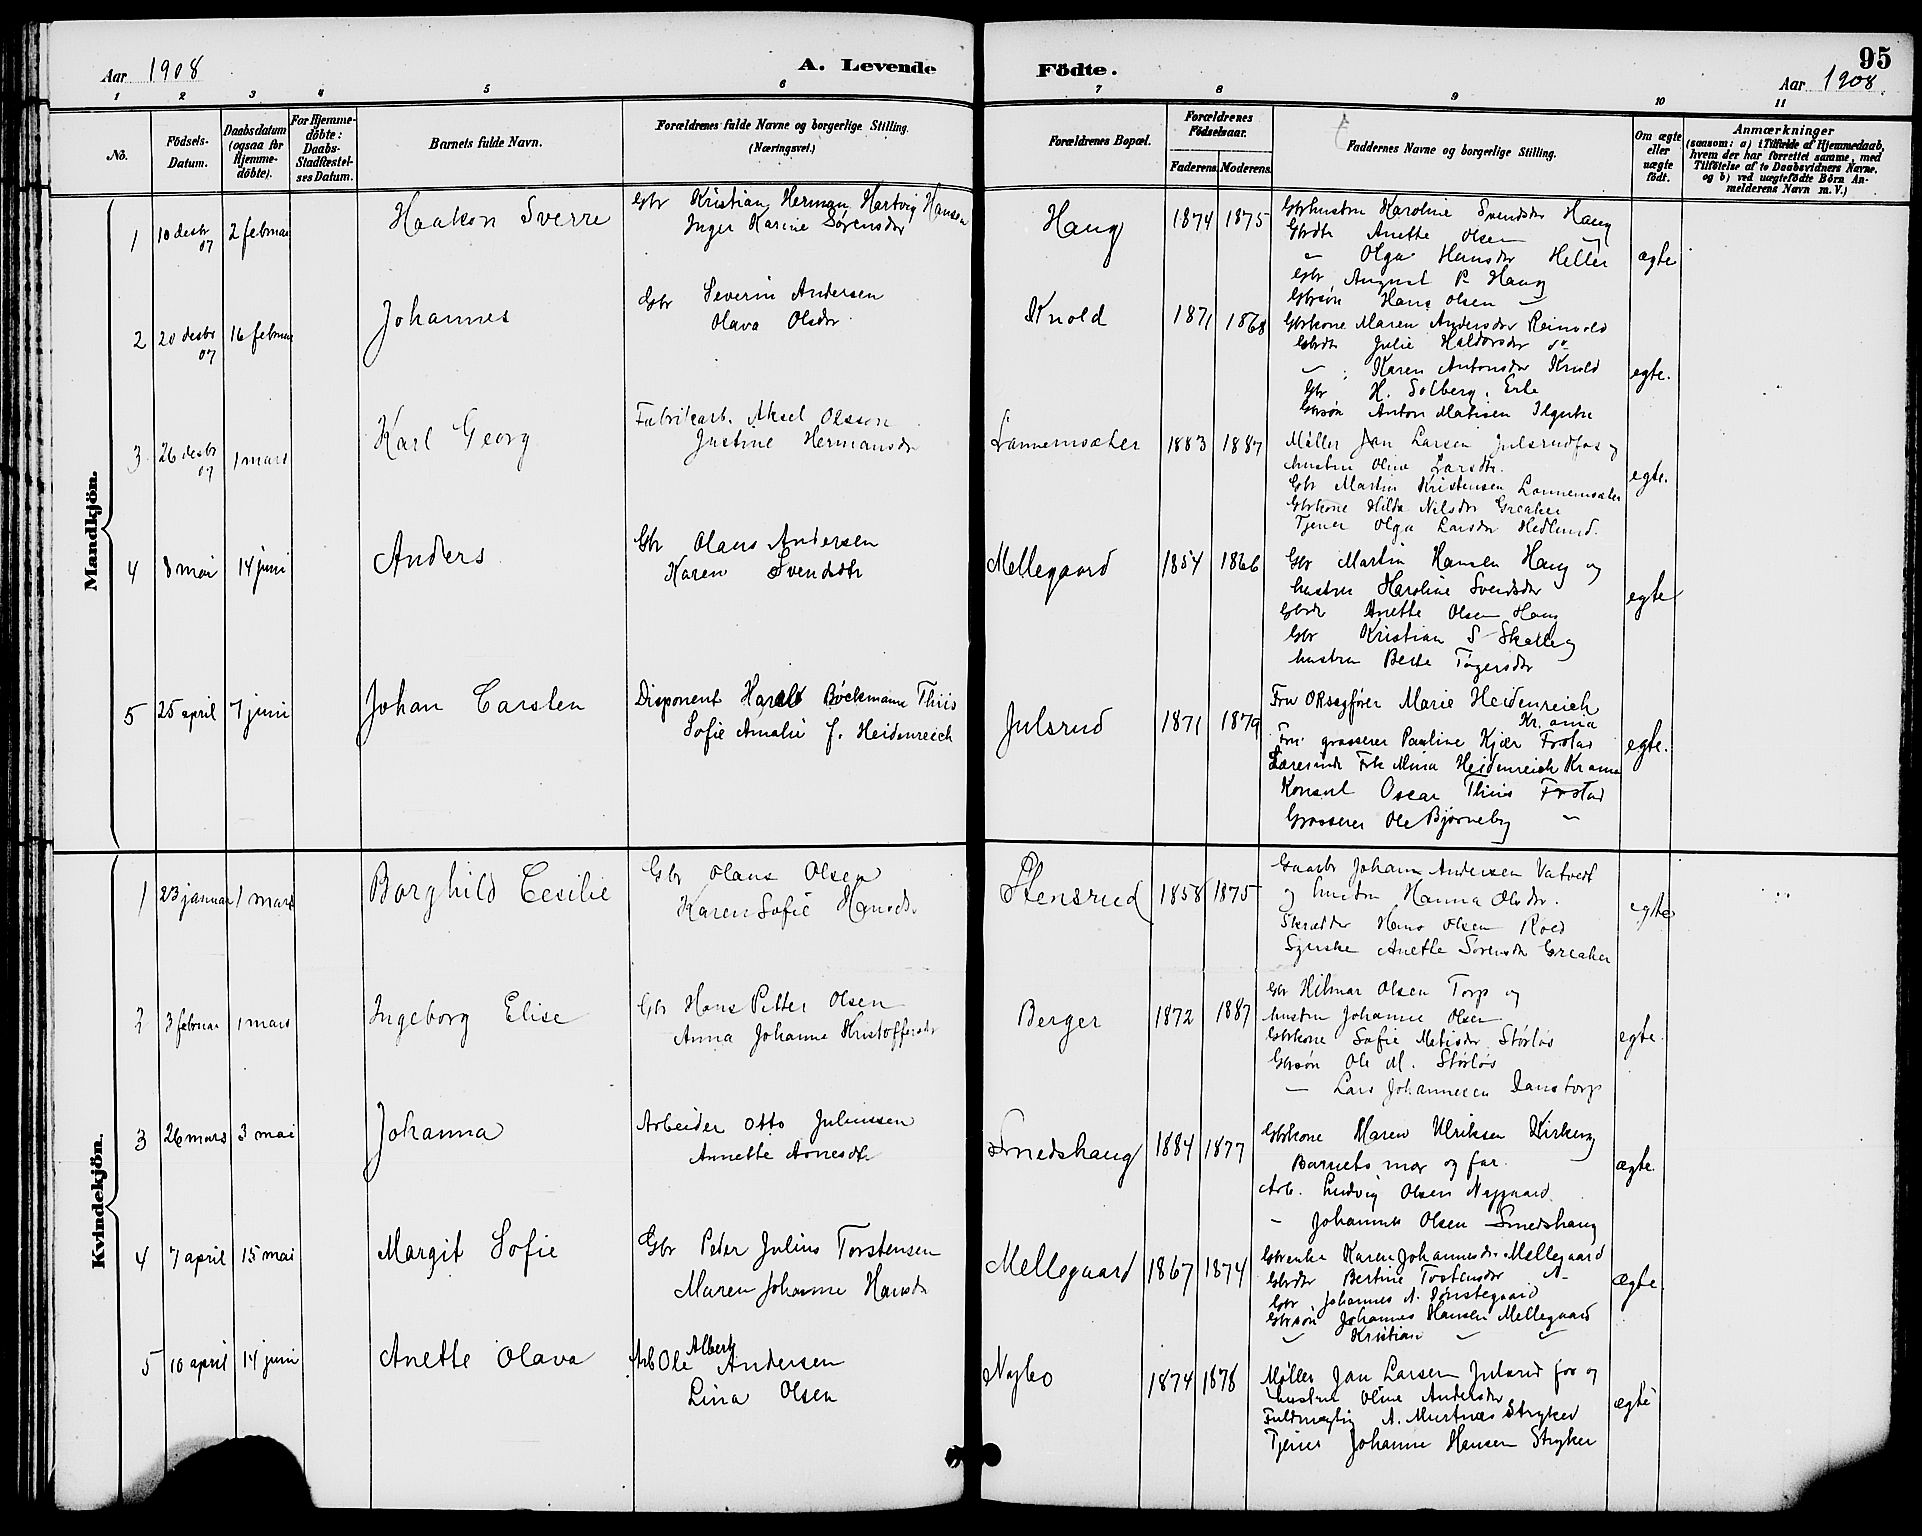 95
Aar 1908
A. Levende Födte.
Aar 1908.
1 2 3 4 5 6 7 8 9 10 11
No.
Födsels-Datum.
Daabsdatum (ogsaa for Hjemme-döbte).
For Hjemme-döbte: Daabs-Stadfæstel-ses Datum.
Barnets fulde Navn.
Forældrenes fulde Navne og borgerlige Stilling. (Næringsvei.)
Forældrenes Bopæl.
Forældrenes Födselsaar.
Faderens. Moderens.
Faddernes Navne og borgerlige Stilling.
Om ægte eller uægte födt.
Anmærkninger
(saasom: a) i Tilfælde af Hjemmedaab, hvem der har forrettet samme, med Tilföielse af to Daabsvidners Navne, og b) ved uægtefödte Börn An-melderens Navn m. V.)
Mandkjön.
1 10 desbr 07 2 februar Haakon Sverre
Gbr Kristian Herman Hartvig Hansen
Inger Karine Sørensdr
Haug 1874 1875
Gbrhustru Karoline Svendsdr Haug
Gbrdtr Anette Olsen
" Olga Hansdr Heller
Gbr. August P. Haug
Gbrsøn Hans Olsen "
ægte
2 20 desbr 07 16 februar Johannes
Gbr Severin Andersen
Olava Olsdr
Knold 1871 1868
Gbrkone Maren Andersdr Reinvold
Gbrdtr Julie Haldorsdr do
" Karen Antonsdr Knold
Gbr H. Solberg. Erle
Gbrsøn Anton Matisen
egte.
3 26 desbr 07 1 mars Karl Georg
Fabrikarb. Aksel Olsson
Justine Hermansdr
Lannemsæter 1883 1887
Møller Jan Larsen Julsrudfos og
hustru Oline Larsdtr.
Gbr Martin Kristensen Lannemsæter
Gbrkone Hilda Nilsdr Greaker
Tjener Olga Larsdr Hedlund.
egte.
4 8 mai 14 juni Anders
Gbr Olaus Andersen
Karen Svendsdtr
Mellegaard 1854 1866
Gbr Martin Hansen Haug og
hustru Karoline Svendsdr
Gbrdtr Anette Olsen Haug
Gbr Kristian S Skalle og
hustru Berte Tøgersdr
egte
5 25 april 7 juni Johan Carsten
Disponent Harald Bøckmann Thiis
Sofie Amalie f. Heidenreich
Julsrud 1871 1879
Fru ORsagfører Marie Heidenreich
Kr.ania
Fru grosserer Pauline Kjær Frstad
Lærerinde Frk Mina Heidenreich Kr ania
Konsul Oscar Thiis Frstad
Grosserer Ole Bjørneby "
egte.
Kvindekjön.
1 23 januar 1 mars Borghild Cesilie
Gbr Olaus Olsen
Karen Sofie Hansdr.
Stensrud 1858 1875
Gaardbr Johann Andersen Vatvedt
og hustru Hanna Olsdr.
Skrædder Hans Olsen Roed
Sypike Anette Sørensdr Greaker
egte
2 3 februar 1 mars Ingeborg Elise
Gbr Hans Petter Olsen
Anna Johanne Kristoffersdr
Berger 1872 1887
Gbr Hilmar Olsen Torp og
hustru Johanne Olsen
Gbrkone Sofie Matisdr Størløs
Gbrsøn Ole M. Størløs
" Lars Johannesen Danstorp
egte.
3 26 mars 3 mai Johanna
Arbeider Otto Juliussen
Annette Arnesdtr
Smedshaug 1884 1877
Gbrkone Maren Ulriksen Kirkeng
Barnets mor og far.
Arb. Ludvig Olsen Nygaard
" Johannes Olsen Smedshaug
ægte.
4 7 april 15 mai Margit Sofie
Gbr Peter Julius Torstensen
Maren Johanne Hansdr
Mellegaard 1867 1874
Gbrenke Karen Johannesdr. Mellegaard
Gbrdtr Bertine Tostensdr "
Gbr Johannes A. Tønstegaard
Gbrsøn Johannes Hansen Mellegaard
" Kristian " "
ægte.
5 10 april 14 juni Anette Olava
Arb Ole Albert Andersen
Lina Olsen
Nybo 1874 1878
Møller Jan Larsen Julsrud fos og
hustru Oline Andersdr
Fuldmægtig A. Mustnes Stryker
Tjener Johanne Hansen Stryker
ægte